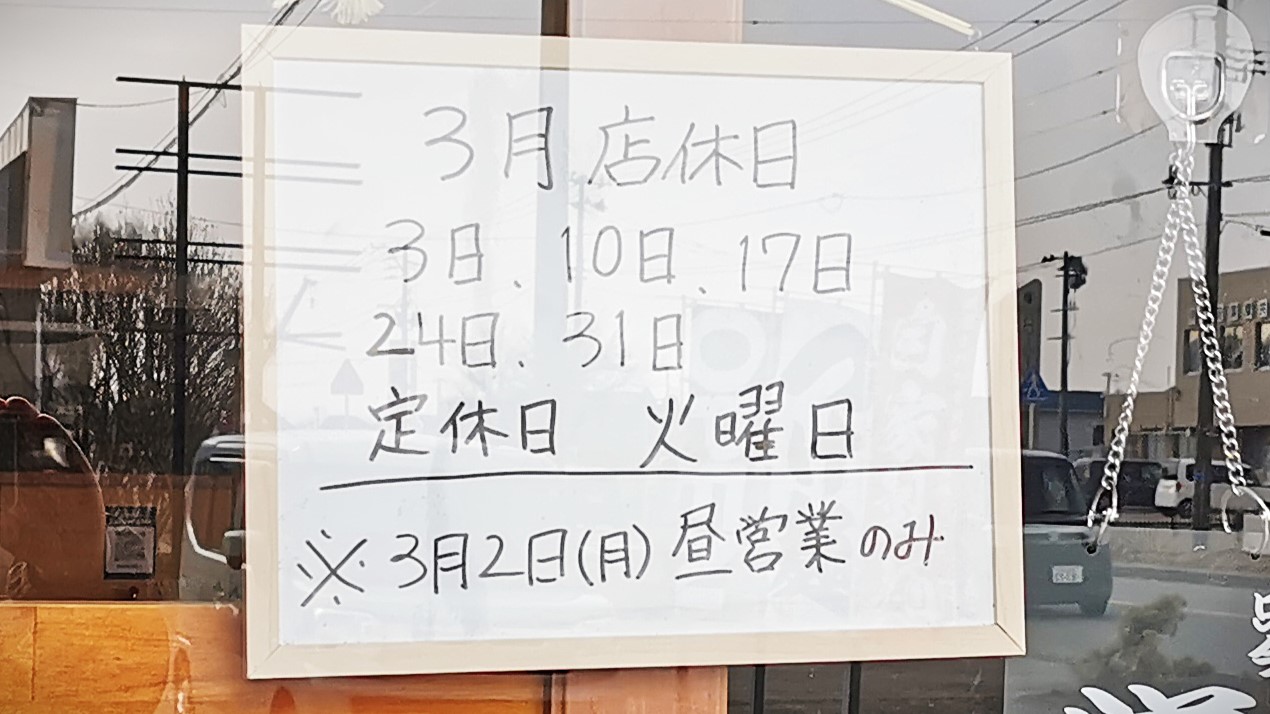 3月店休日
3日、10日、17日
24日、31日
定休日 火曜日
※3月2日(月)昼営業のみ